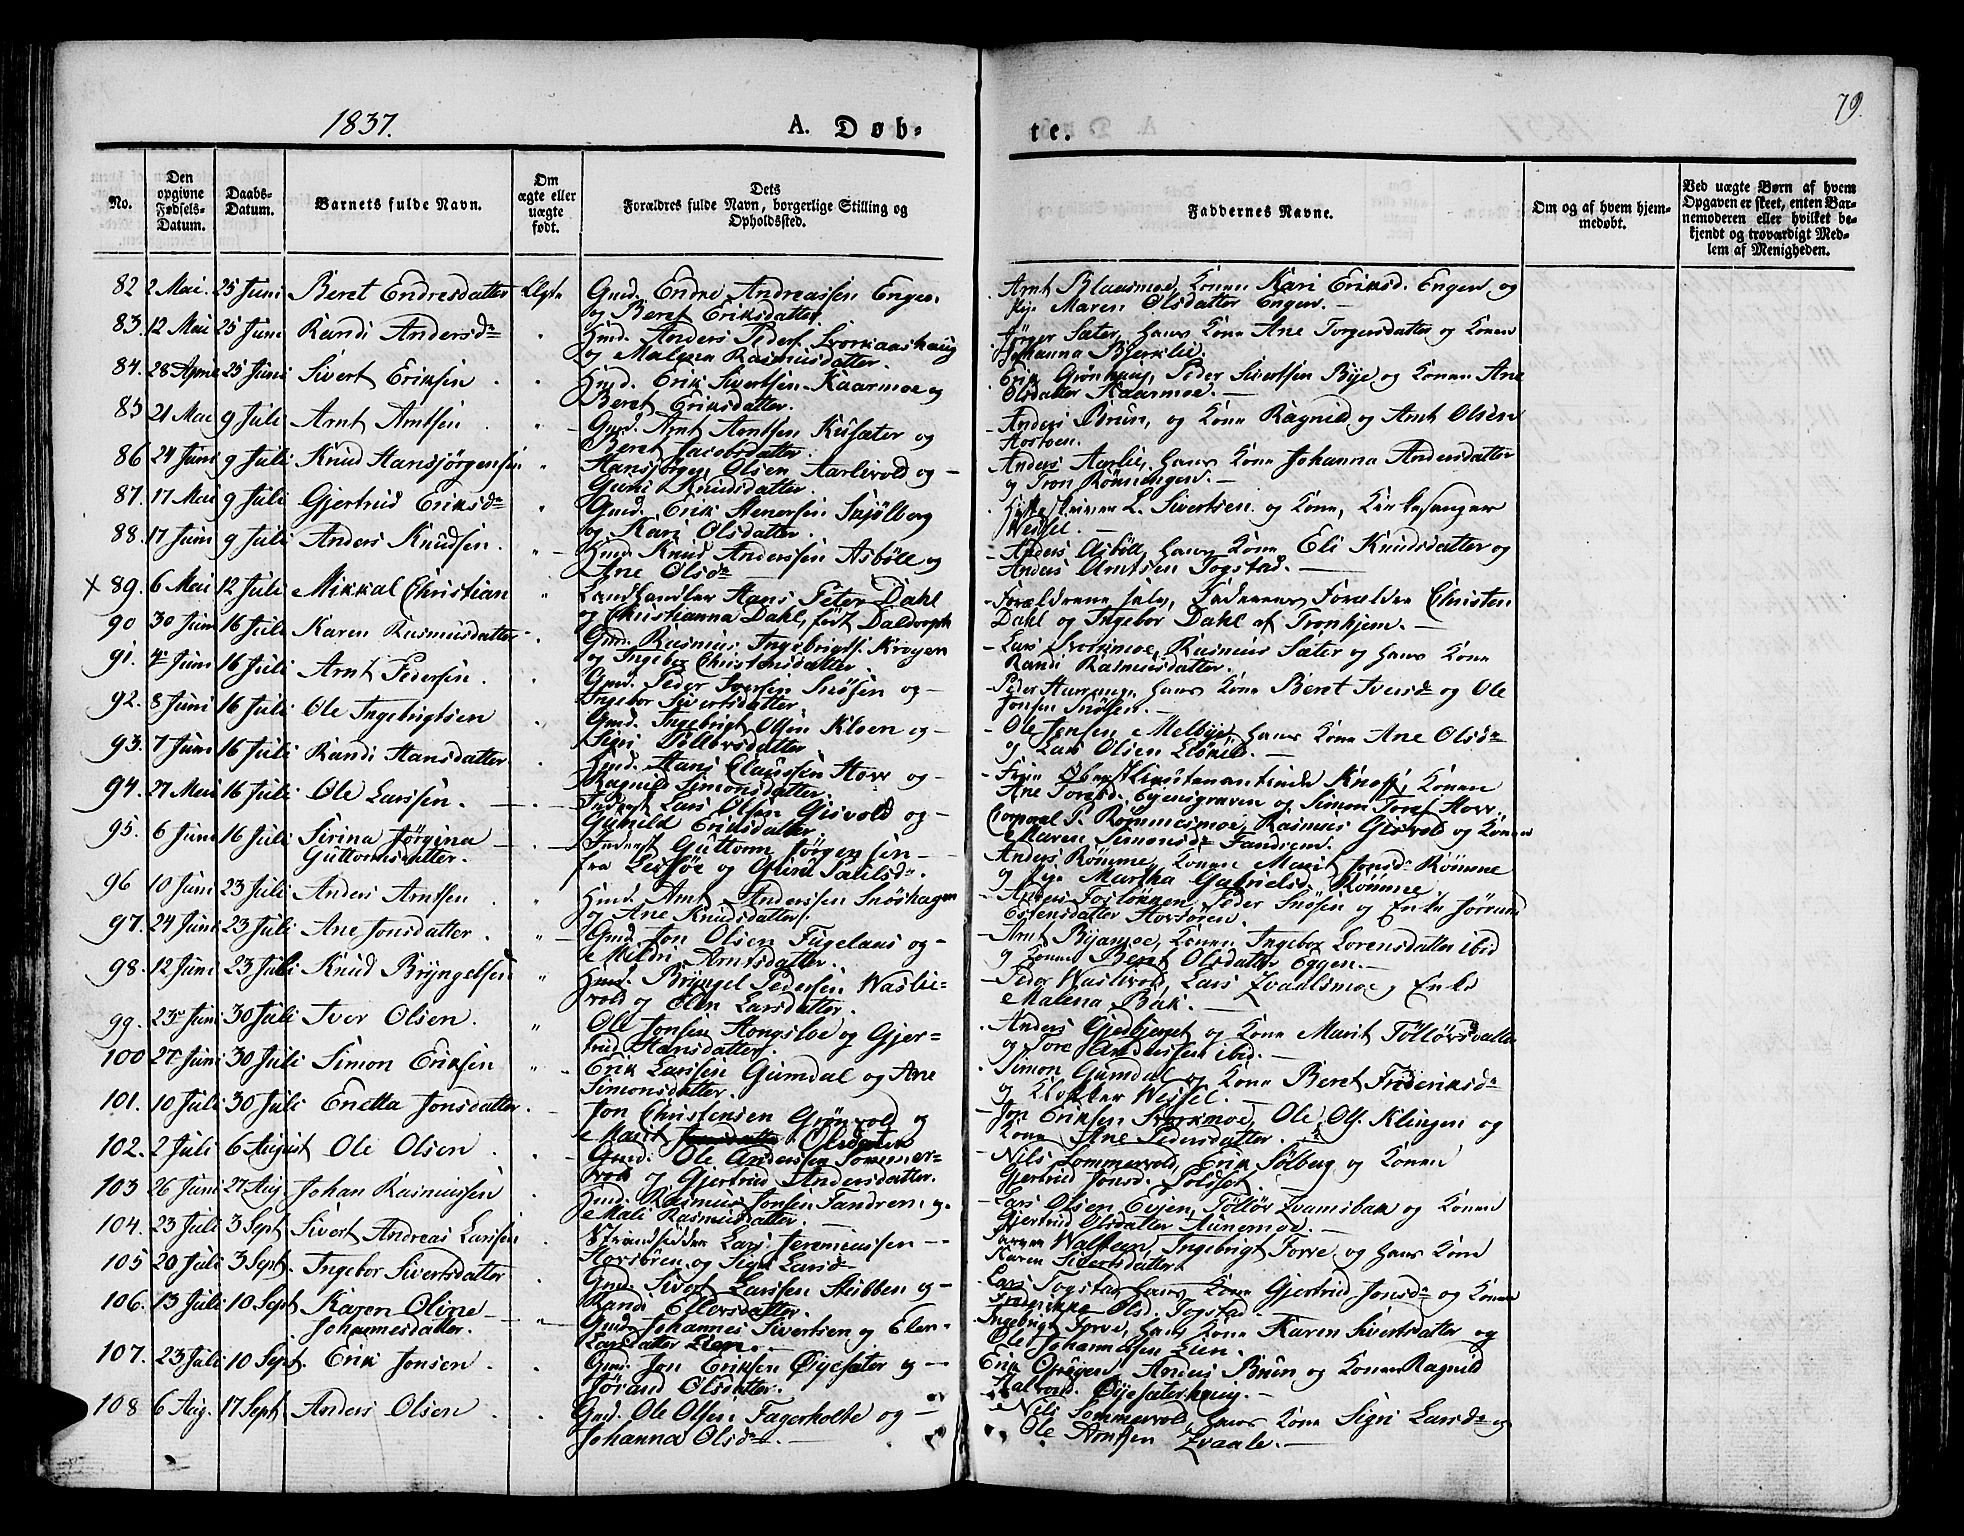 1837.
A. Døb-
te.
79.
No.
Den opgivne Fødsels-Datum.
Daabs-Datum.
Barnets fulde Navn.
Om ægte eller uægte født.
Dets Forældres fulde Navn, borgerlige Stilling og Opholdssted.
Faddernes Navne.
Om og af hvem hjem-medøbt.
Ved uægte Børn af hvem Opgaven er skeet, enten Bar-nemoderen eller hvilket be-kjendt og troværdigt Med-lem af Menigheden.
82 2 Mai. 25 Juni Beret Endresdatter Ægte Gmd. Endre Andreassen Engen
og Beret Eriksdatter.
Arnt Blaasmoe, Konen Kari Eriksd. Engen og
Pige Maren Olsdatter Engen.
83. 12 Mai 25 Juni Randi Andersdr Hmd. Anders Peders. Svorkaashaug
og Malena Rasmusdatter.
Jørger Sæter, hans Kone Ane Torgersdatter og Konen
Johanna Bjerklie.
84. 28 April 25 Juni Sivert Eriksen Hmd. Erik Sivertsen Kaarmoe og
Beret Eriksdatter.
Erik Grønhaug, Peder Sivertsen Bye og Konen Ane
Olsdatter Kaarmoe.
85 21 Mai 9 Juli Arnt Arntsen Gmd. Arnt Arntsen Kusæter og
Beret Jacobsdatter.
Anders Brun, og Kone Ragnild og Arnt Olsen
86 24 Juni 9 Juli Knud Hansjörgensen Hansjørgen Olsen Aarlivold og
Guri Knudsdatter.
Anders Aarlie, hans Kone Johanna Andersdatter
og Tron Rønningen.
87. 17 Mai 9 Juli Gjertrud Eriksdr Gmd. Erik Stenersen Skjølberg
og Kari Olsdatter.
L. Sivertsen og Kone, Kirkesanger
Wessel.
88. 17 Juni 9 Juli Anders Knudsen. Hmd. Knud Anderssen Asbøll og
Ane Olsdr
Anders Asbøll, hans Kone Eli Knudsdatter og
Anders Arntsen Togstad.
x 89. 6 Mai 12 Juli Mikkal Christian Landhandler Hans Peter Dahl
og Christianna Dahl, født Daldorph
Forældrene selv, Faderens Forældre Christen
Dahl og Ingebor Dahl af Tronhjem.
90 30 Juni 16 Juli Karen Rasmusdatter Gmd. Rasmus Ingebrigts. Krogen
og Ingebor Christensdatter.
Lars Svorkmoe, Rasmus Sæter og hans Kone
Randi Rasmusdatter.
91. 4 Juni 16 Juli Arnt Pedersen. Gmd. Peder Iversen Snøsen og
Ingebor Sivertsdatter.
Peder hans Kone Beret Iversdr og Ole
Jonsen Snøsen.
92. 8 Juni 16 Juli Ole Ingebrigtsen Gmd. Ingebrigt Olsen Kloen og
Sigri
Ole Jensen Melbye, hans Kone Ane Olsdr
og Lars Olsen
93. 7 Juni 16 Juli Randi Hansdatter Hmd. Hans Claussen Horr og
Ragnild Simonsdatter.
Frue Øberstlieutenantinde Knoff, Konen
Ane Toresd. Eyensgraven og Simon Tores. Horr.
94. 27 Mai 16 Juli Ole Larssen. Inderst Lars Olsen Gisvold og
Gunild Eriksdatter
Corporal P. Römmesmoe, Rasmus Gisvold og Konen
Maren Simonsdr Fandrem.
95. 6 Juni 16 Juli Sirina Jørgina
Guttormsdatter.
Inderst Guttorm Jørgensen
fra Lessøe og Guru
Anders Römme, Konen Marit Jonsdr Römme
og Pige Martha Gabrielsd. Römme.
96 10 Juni 23 Juli Anders Arntsen Hmd. Arnt Anderssen Snøshagen
og Ane Knudsdatter.
Peder Snøsen og Enke
Estensdatter
97. 24 Juni 23 Juli Ane Jonsdatter Gmd. Jon Olsen Fugelaas og
Arntsdatter.
Arnt Byamoe, Konen Ingebor Lorensdatter ibid
og Konen Beret Olsdatter Eggen.
98. 12 Juni 23 Juli Knud Bryngelsen Hmd. Bryngel Pedersen Waslie-
vold og Elen Larsdatter.
Peder Waslivold, Lars Qvaalsmoe og Enke
Malena Bak.
99. 23 Juni 30 Juli Iver Olsen. Ole Jonsen Hongsloe og Gjer-
trud Hansdatter.
Anders Gjedbjerget og Kone Marit
og Tore Anderssen ibid.
100 27 Juni 30 Juli Simon Eriksen Erik Larssen Gumdal og Ane
Simonsdatter.
Simon Gumdal og Kone Beret Frederiksdr
og Klokker Wessel.
101. 10 Juli 30 Juli Enetta Jonsdatter Jon Christensen Grönvold og
Marit Olsdatter
Jon Eriksen Svorkmoe, Ole Ols. Klingen og
Kone Ane Pedersdatter.
102. 2 Juli 6 August Ole Olsen Gmd. Ole Anderssen Sommer-
vold og Gjertrud Andersdatter.
Nils Sommervold, Erik Sølberg og Konen
Gjertrud Jonsd. Solset.
103 26 Juni 27 Aug. Johan Rasmussen Hmd. Rasmus Jonsen Fandrem og
Mali Rasmusdatter.
Lars Olsen Eyen, Tollör Qvamsbak og Konen
Gjertrud Olsdatter Aunemoe.
104. 23 Juli 3 Sept. Sivert Andreas Larssen Strandsidder Lars Jeremiassen
og Sigri Larsdr
Walstum, Ingebrigt Torve og hans Kone
Karen Sivertsdatter
105 20 Juli 3 Sept. Ingebor Sivertsdatter Gmd. Sivert Larssen Stubben og
Randi
Lars Togstad, hans Kone Gjertrud Jonsdr og Konen
Frederikke Olsd. Togstad.
106. 13 Juli 10 Sept. Karen Oline
Johannesdatter.
Gmd. Johannes Sivertsen og Elen
Larsdatter Lien.
Ingebrigt Torve, hans Kone Karen Sivertsdatter og
Ole Johannessen Lien.
107. 23 Juli 10 Sept. Erik Jonsen Gmd. Jon Eriksen Øyesæter og
Jørand Olsdatter.
Erik Anders Brun og Konen Ragnild
Halvorsd. Øyesæterhaug.
108 6 Aug. 17 Sept. Anders Olsen Gmd. Ole Olsen Fagerholte og
Johanna Olsdr
Nils Sommervold, hans Kone Sigri Larsdr og
Ole Arntsen Qvaale.